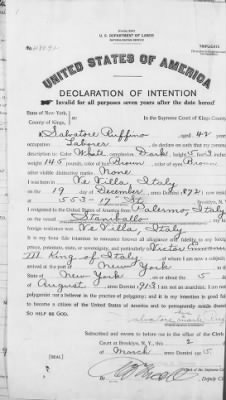 U. S. DEPARTMENT OF LABOR
NATURALIZATION SERVICE
TRIPLICATE
No.
UNITED STATES OF AMERICA
DECLARATION OF INTENTION
Invalid for all purposes seven years after the date hereof
State of New York,
County of Kings, ss: In the Supreme Court of Kings County
I, Salvatore Ruffino, aged 42 years
occupation Laborer, do declare on oath that my personal
description is: Color White, Dark, 5 feet 3 inches
weight 145 pounds, color of hair Brown, color of eyes Brown
other visible distinctive marks None
I was born in Italy
on the 19 day of December, 1872; I now reside
at 553-17" St, Brooklyn, N. Y.
I emigrated to the United States of America from Palermo, Italy
on the vessel; my last
foreign residence was Italy
It is my bona fide intention to renounce forever all allegiance and fidelity to any foreign
prince, potentate, state, or sovereignty, and particularly to Victor Emmanuel
III King of Italy, of whom I am now a subject; I
arrived at the port of New York, in the
State of New York, on or about the 5 day
of August, 1913; I am not an anarchist; I am not a
polygamist nor a believer in the practice of polygamy; and it is my intention in good faith
to become a citizen of the United States of America and to permanently reside therein:
SO HELP ME GOD.
his
mark
Subscribed and sworn to before me in the office of the Clerk of
Court at Brooklyn, N. Y., this 2 day
of March, anno Domini 1915
[SEAL]
Clerk of the Supreme Court
Deputy Clerk